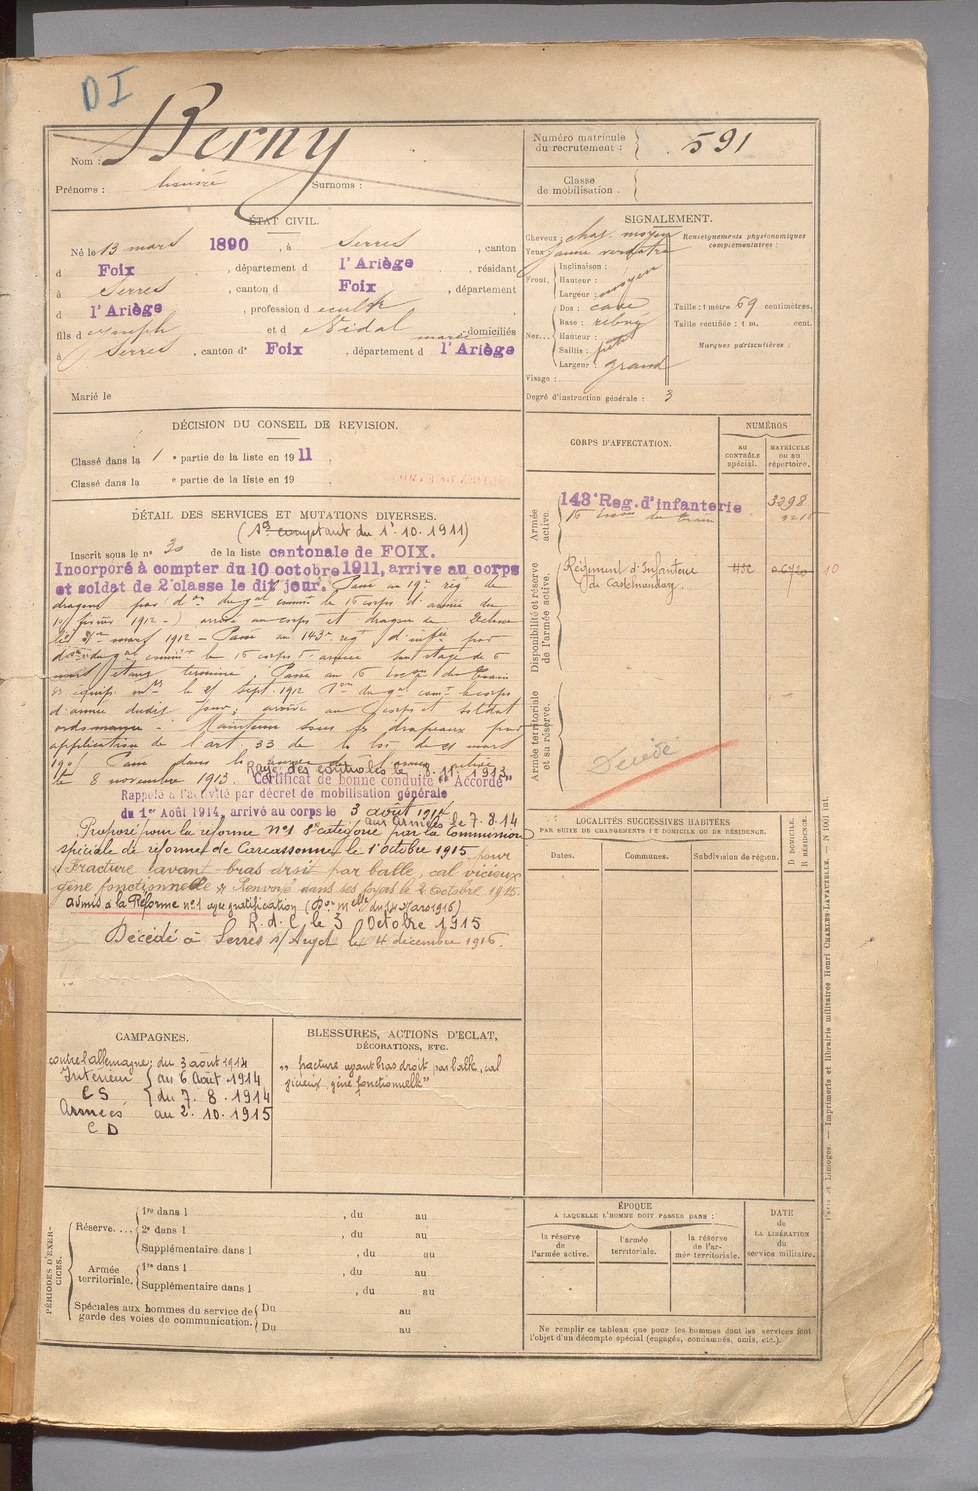 DI
Nom : Berny
Prénoms : Surnoms :
Numéro matricule du recrutement : 591
Classe de mobilisation
ÉTAT CIVIL.
Né le 13 mars 1890, à Serres, canton
d Foix, département d l'Ariège, résidant
à Serres, canton d Foix, département
d l'Ariège, profession d
fils d Joseph et d Vidal marie domiciliés
à Serres, canton de Foix, département d l'Ariège
Marié le
SIGNALEMENT.
Cheveux : chat. moyen
Yeux jaune verdâtre
Front. Inclinaison :
Hauteur : moyen
Largeur :
Nez... Dos : cave
Base :
Hauteur :
Saillie : petit
Largeur : grand
Visage :
Degré d'instruction générale : 3
Renseignements physionomiques complémentaires :
Taille : 1 mètre 69 centimètres.
Taille rectifiée : 1 m. cent.
Marques particulières :
DÉCISION DU CONSEIL DE REVISION.
Classé dans la 1 e partie de la liste en 1911
Classé dans la e partie de la liste en 19
CORPS D'AFFECTATION.
NUMÉROS
AU CONTRÔLE spécial.
MATRICULE OU AU répertoire.
Armée active.
143e Reg. d'infanterie 3298
16 escon du train 3215
Disponibilité et réserve de l'armée active.
Régiment d'Infanterie de Castelnaudary 10
Armée territoriale et sa réserve.
Décédé
DÉTAIL DES SERVICES ET MUTATIONS DIVERSES.
(Sce comptant du 1. 10. 1911)
Inscrit sous le n° 30 de la liste cantonale de FOIX.
Incorporé à compter du 10 octobre 1911, arrive au corps
et soldat de 2e classe le dit jour. Passé au 19e régt de
dragons par don du gal commt le 16 corps d'armée du
février 1912 arrivé au corps et dragon de 2e classe
mars 1912 - Passé au 143e regt d'infie par
don du gal commt le 16 corps d'armée stage de 6
mois étant terminé, Passé au 16 escon du Train
le 21 sept. 1912 don du gal comt le corps
d'armée dudit jour, arrivé au corps et soldat
ordonnance - Maintenu sous les drapeaux par
application de l'art 33 de la loi de 21 mars
190 Passé dans la réserve de l'armée active
le 8 novembre 1913. Rayé des contrôles le 8.11.1913
Certificat de bonne conduite "Accordé"
Rappelé à l'activité par décret de mobilisation générale
du 1er Août 1914, arrivé au corps le 3 août 1914
aux armées le 7.8.14
Proposé pour la réforme n°1 8e catégorie par la Commission
spéciale de réforme de Carcassonne le 1 Octobre 1915 pour
"Fracture avant-bras droit par balle, cal vicieux
gêne fonctionnelle" Renvoyé dans ses foyers le 2 Octobre 1915.
admis à la Réforme n°1 avec gratification (Don Melle du 14 Mars 1916)
R.d.C le 3 Octobre 1915
Décédé à Serres s/ Arget le 4 décembre 1916.
LOCALITÉS SUCCESSIVES HABITÉES
PAR SUITE DE CHANGEMENTS DE DOMICILE OU DE RÉSIDENCE.
Dates. Communes. Subdivision de région.
D DOMICILE. R RÉSIDENCE.
CAMPAGNES.
contre l'allemagne : du 3 août 1914
Intérieur au 6 Août 1914
CS du 7. 8. 1914
Armées au 2. 10. 1915
CD
BLESSURES, ACTIONS D'ÉCLAT,
DÉCORATIONS, ETC.
"fracture avant bras droit par balle, cal
vicieux, gêne fonctionnelle"
PÉRIODES D'EXERCICES.
Réserve.... 1re dans l , du au
2e dans l , du au
Supplémentaire dans l , du au
Armée territoriale. 1re dans l , du au
Supplémentaire dans l , du au
Spéciales aux hommes du service de garde des voies de communication. Du au
Du au
ÉPOQUE
A LAQUELLE L'HOMME DOIT PASSER DANS :
la réserve de l'armée active.
l'armée territoriale.
la réserve de l'armée territoriale.
DATE de LA LIBÉRATION du service militaire.
Ne remplir ce tableau que pour les hommes dont les services font
l'objet d'un décompte spécial (engagés, condamnés, omis, etc.).
Paris et Limoges. — Imprimerie et librairie militaires Henri CHARLES-LAVAUZELLE. — N 1001 int.